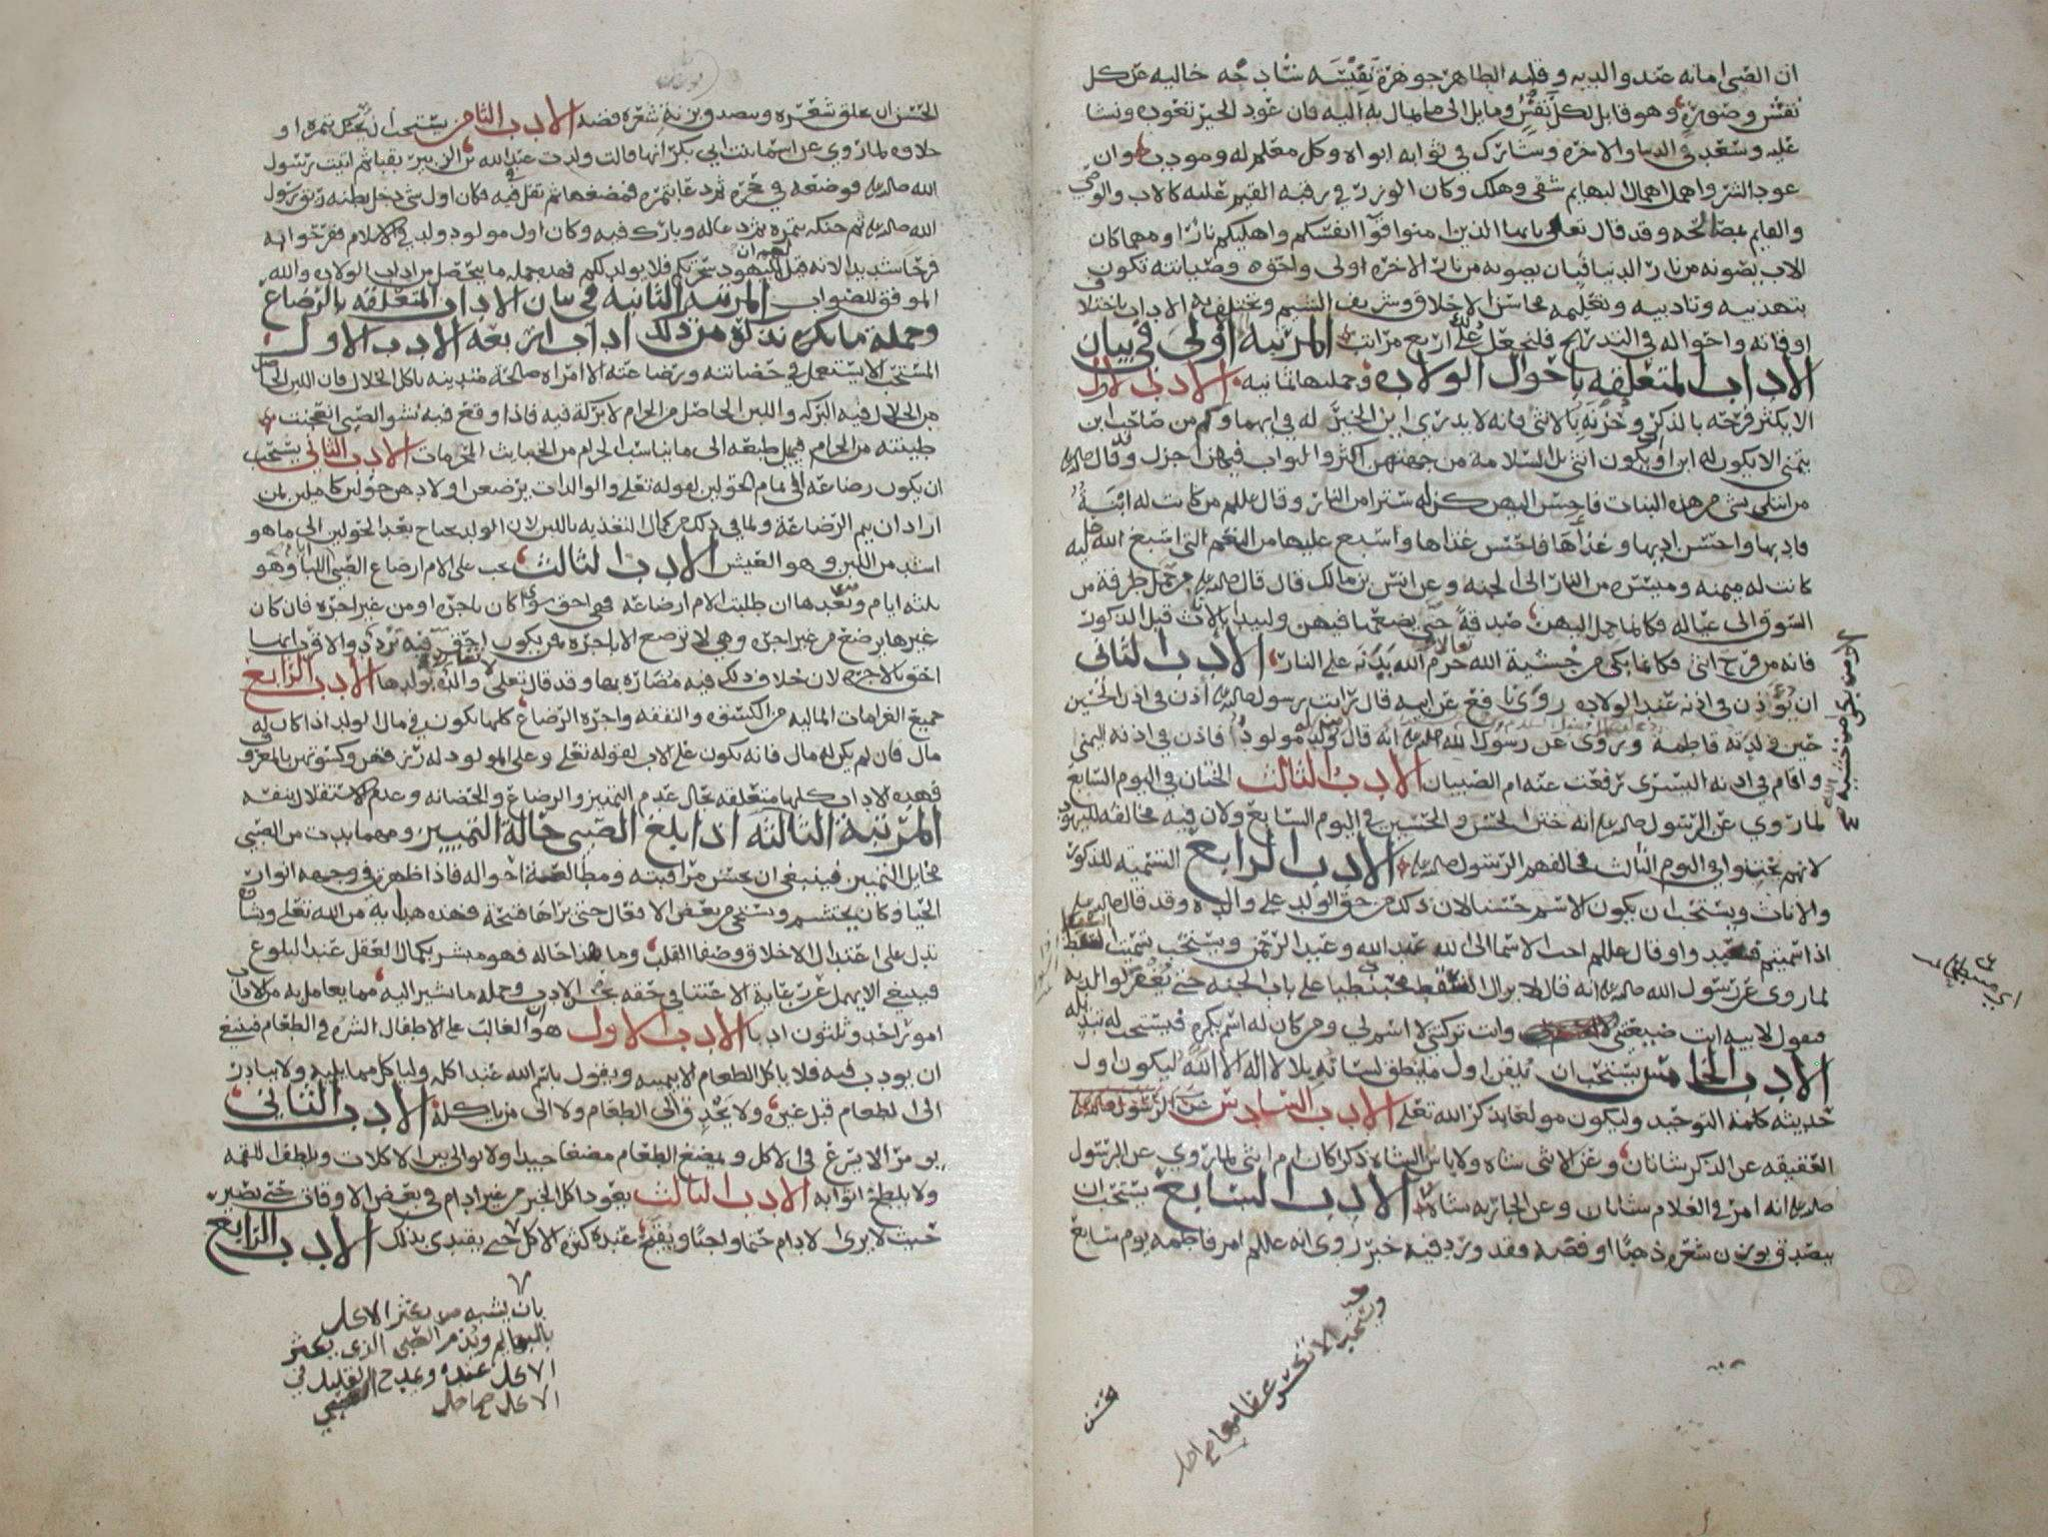 ان الصبي امانه عند والديه وقلبه الطاهر جوهرة نفيسه ساذجه خاليه عن كل
نقش وصورة وهو قابل لكل نقش ومايل الى كل ما يمال به اليه فان عود الخير تعوده ونشا
عليه وسعد في الدنيا والاخره وشاركه في ثوابه ابواه وكل معلم له ومودب وان
عود الشر واهمل اهمال البهايم شقى وهلك وكان الوزر في رقبه القيم عليه كالاب والوصي
والقايم بمصالحه وقد قال تعالى يايها الذين امنوا قوا انفسكم واهليكم نارا ومهما كان
الاب يصونه من نار الدنيا فبان يصونه من نار الاخره اولى واحق وصيانته تكون
بتهذيبه وتاديبه وتعليمه محاسن الاخلاق وشريف الشيم وتختلف به الاداب باختلا
اوقاته واحواله في التدريج فلنجعل على اربع مراتب المرتبة اولى في بيان
الاداب المتعلقه باحوال الولاده وجملتها ثمانيه الادب الاول
الا يكثر فرحه بالذكر وحزنه بالانثى فانه لا يدرى اين الخير له في ايهما وكم من صاحب ابن
يتمنى الا يكون له ابن او يكون انثى بل السلامه من جهتهن اكثر والثواب فيهن اجزل وقال صلى الله عليه
من ابتلي بشي من هذه البنات فاحسن اليهن كن له سترا من النار وقال عللم من كانت له ابنة
فادبها واحسن ادبها وغذاها فاحسن غذاها واسبع عليها من النعم التي اسبغ الله عليه
كانت له ميمنه وميسره من النار الى الجنه وعن انس بن مالك قال قال صلى الله عليه من حمل طرفة من
السوق الى عياله فكانما حمل اليهن صدقة حتى يضعها فيهن وليبدا بالاناث قبل الذكور
فانه من فرح انثى فكانما بكى من خشية الله حرم الله بدنه على النار الادب الثاني
ان يؤذن في اذنه عند الولاده روى رافع عن ابيه قال رايت رسول صلى الله عليه اذن في اذن الحسين
حين ولدته فاطمه وروى عن رسول الله صلى الله عليه انه قال من ولد له مولود فاذن في اذنه اليمنى
واقام في اذنه اليسرى رفعت عنه ام الصبيان الادب الثالث الختان في اليوم السابع
لما روي عن الرسول صلى الله عليه انه ختن الحسن والحسين في اليوم السابع ولان فيه مخالفه لليهود
لانهم يختنوا في اليوم الثالث فخالفهم الرسول صلى الله عليه الادب الرابع التسميه للذكور
والاناث ويستحب ان يكون الاسم حسنا لان ذلك من حق الولد على والده وقد قال صلى الله عليه
اذا سميتم فعبدوا وقال عللم احب الاسما الى الله عبد الله وعبد الرحمن ويستحب تسمية السقط
لما روى عن رسول الله صلى الله عليه انه قال لا يزال السقط محبنطيا على باب الجنه حتى يغفر لوالديه
فيقول لابيه انت ضيعتني وانت تركتني لا اسم لي ومن كان له اسم يكره فيستحب له تبديله
الادب الخامس يستحب ان يلقن اول ما ينطق لسانه بلا لا اله الا الله ليكون اول
حديثه كلمة التوحيد وليكون مولعا بذكر الله تعلى الادب السادس عن الرسول صلى الله عليه
العقيقه عن الذكر شاتان وعن الانثى شاه ولا باس الشاه ذكرا كان ام انثى لما روي عن الرسول
صلى الله عليه انه امر في الغلام شاتان وعن الجاريه شاة الادب السابع يستحب ان
يتصدق بوزن شعره ذهبا او فضه فقد ورد فيه خبر روى انه عللم امر فاطمه يوم سابع
ويستحب الا تكسر عظامها
الحسن ان يحلق شعره ويتصدق بزنة شعره فضه الادب الثامن يستحب ان يحنك بتمره او
حلاوه لما روي عن اسما بنت ابي بكر انها قالت ولدت عبد الله بن الزبير بقبا ثم اتيت رسول
الله صلى الله عليه فوضعه في حجره ثم دعا بتمره فمضغها ثم تفل فيه فكان اول شي دخل بطنه ريق رسول
الله صلى الله عليه ثم حنكه بتمره ثم دعا له وبارك فيه وكان اول مولود ولد في الاسلام ففرحوا به
فرحا شديدا لانه قيل لهم ان اليهود سحرتكم فلا يولد لكم فهذه جمله ما يتحصل من اداب الولاده والله
الموفق للصواب المرتبه الثانيه في بيان الاداب المتعلقه بالرضاع
وجملة ما نكره نذكره من ذلك اداب اربعه الادب الاول
المستحب الا يستعمل في حضانته ورضاعته الا امراه صالحة متدينه باكل الحلال فان اللبن الحاصل
من الحلال فيه البركه واللبن الحاصل من الحرام لا بركة فيه فاذا وقع فيه نشو الصبي انعجنت
طينته من الحرام فيميل طبعه الى ما يناسب الحرام من الخبايث المحرمات الادب الثاني يستحب
ان يكون رضاعه الى تمام الحولين لقوله تعلى والوالدات يرضعن اولادهن حولين كاملين لمن
اراد ان يتم الرضاعة ولما في ذلك من كمال التغذيه باللبن لان الولد يحتاج بعد الحولين الى ما هو
اشد من اللبن وهو العيش الادب الثالث يجب على الام ارضاع الصبي اللبا وهو
ثلثه ايام وبعدها ان طلبت الام ارضاعه فهي احق سوى كان باجره او من غير اجره فان كان
غيرها يرضع من غير اجره وهي لا ترضع الا باجره فمن يكون احق فيه تردد والاقرب انها
احق بالاجره لان خلاف ذلك فيه مضاره بها وقد قال تعلى لا تضار والده بولدها الادب الرابع
جميع الغرامات الماليه من الكسوه والنفقه واجره الرضاع كلها يكون في مال الولد اذا كان له
مال فان لم يكن له مال فانه يكون على الاب لقوله تعلى وعلى المولود له رزقهن وكسوتهن بالمعروف
فهذه الاداب كلها متعلقه بحال عدم التمييز والرضاع والحضانه وعدم الاستقلال بنفسه
المرتبة الثالثه اذا بلغ الصبي حالة التمييز ومهما بدت من الصبي
مخايل التمييز فينبغي ان يحسن مراقبته ومطالعة احواله فاذا ظهرت في وجهه انوار
الحيا وكان يحتشم ويستحي من بعض الافعال حتى يراها قبيحة فهذه هدايه من الله تعلى وبشاره
تدل على اعتدال الاخلاق وصفا القلب وما هذا حاله فهو مبشر بكمال العقل عند البلوغ
فينبغي الا يهمل عن رعاية الاعتنا في حقه بحسن الادب وجمله ما نشير اليه مما يعامل به من الاداب
امور احد وثلثون ادبا الادب الاول هو ان الغالب على الاطفال الشره في الطعام فينبغي
ان يودب فيه فلا ياكل الطعام الا بيمينه ويقول باسم الله عند اكله ولياكل مما يليه ولا يبادر
الى الطعام قبل غيره ولا يحدق الى الطعام ولا الى من ياكله الادب الثاني
يومر الا يسرع في الاكل ويمضغ الطعام مضغا جيدا ولا يوالي بين الاكلات ويلطف اللقمه
ولا يلطخ اثوابه الادب الثالث يعود اكل الخبز من غير ادام في بعض الاوقات حتى يصير
حيث لا يرى الادام حتما واجبا ويقبح عنده كثره الاكل حتى يقتدى بذلك الادب الرابع
بان يشبه من يكثر الاكل
بالبهايم ويذم الصبي الذي يكثر
الاكل عنده ويمدح القليل في
الاكل